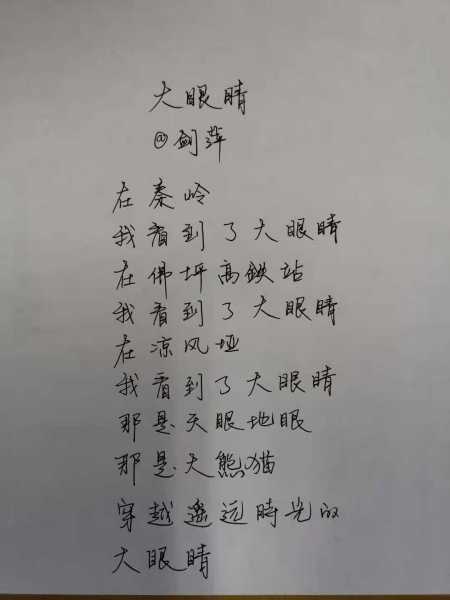 大眼睛
@剑萍
在秦岭
我看到了大眼睛
在佛坪高鉄站
我看到了大眼睛
在凉风垭
我看到了大眼睛
那是天眼地眼
那是大熊猫
穿越遥远時光的
大眼睛